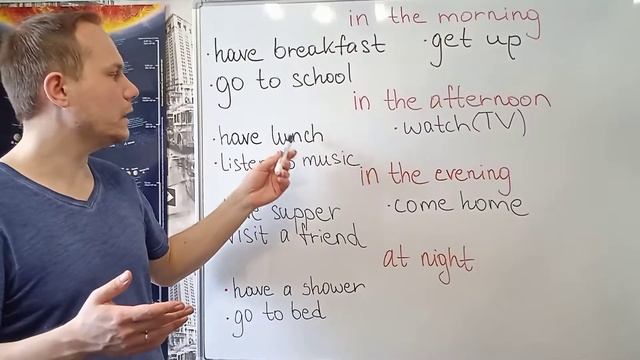 in the morning
· have breakfast · get up
· go to school
in the afternoon
· have lunch · watch (TV)
· listen music
in the evening
supper · come home
visit a friend
at night
· have a shower
· go to bed